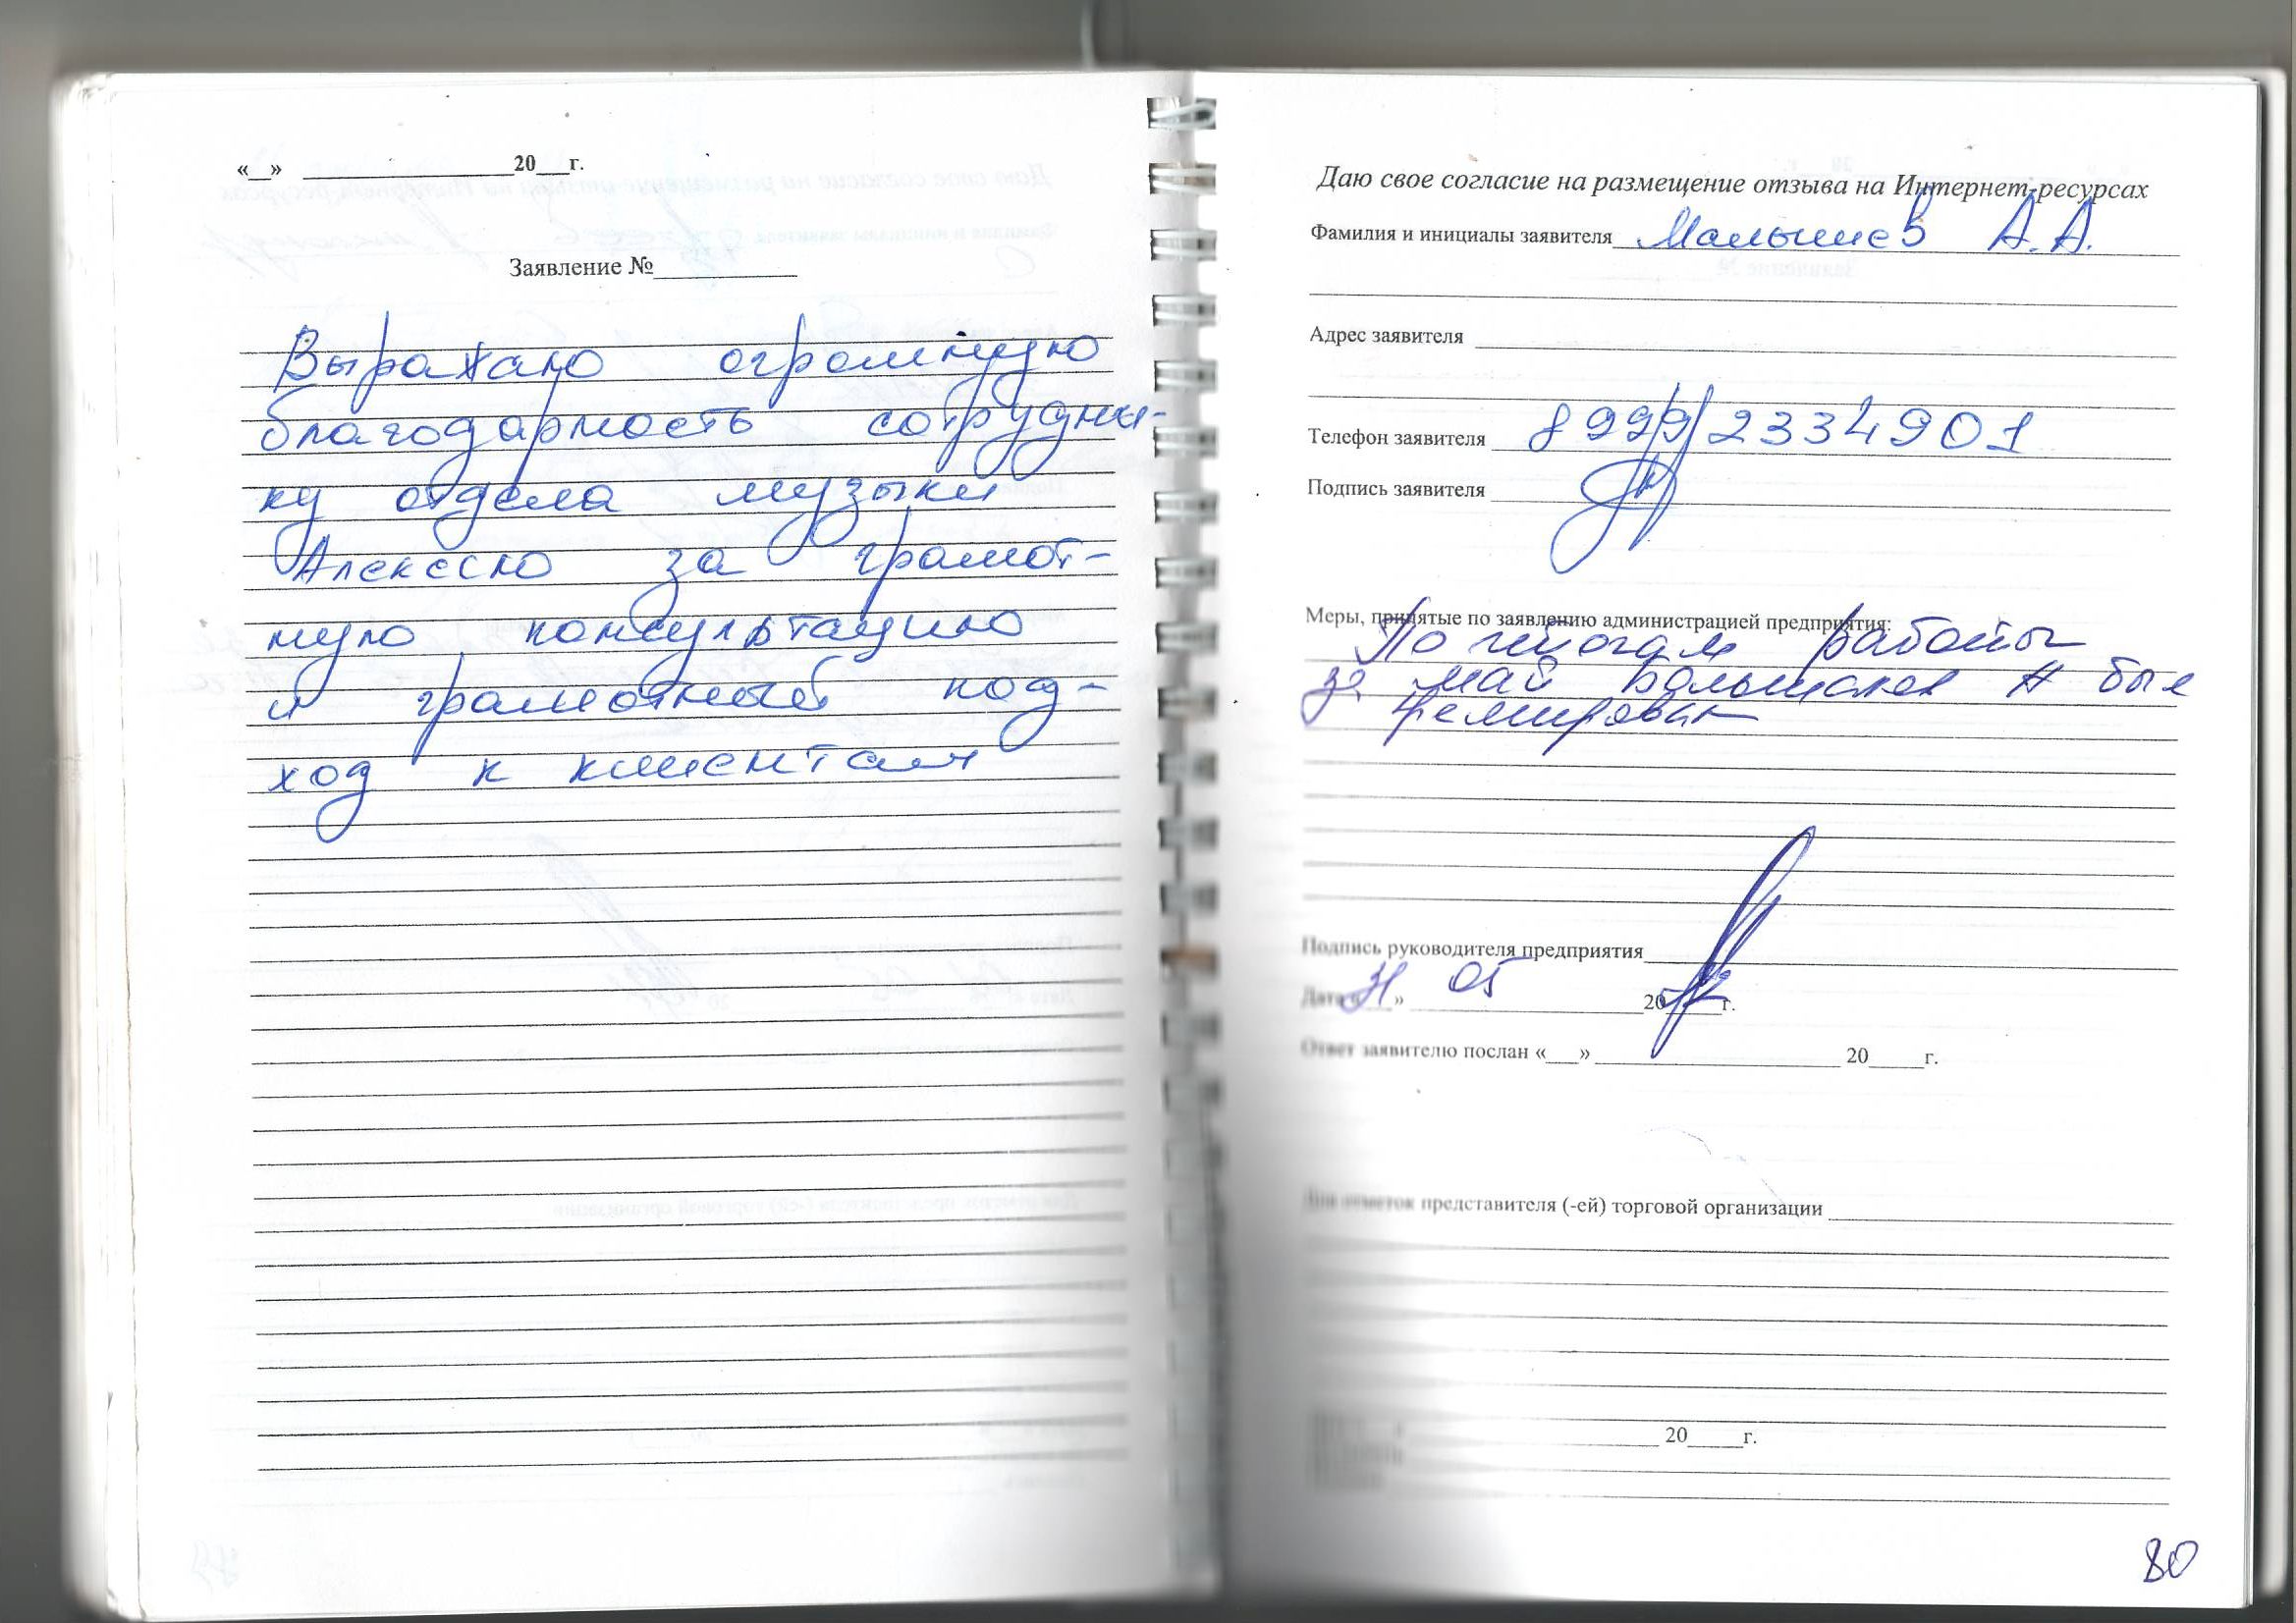 «__» ________________20___г.
Заявление №___________
Выражаю огромную
благодарность сотрудни-
ку отдела музыки
Алексею за грамот-
ную консультацию
и грамотный под-
ход к клиентам
Даю свое согласие на размещение отзыва на Интернет-ресурсах
Фамилия и инициалы заявителя Малышев А.А.
Адрес заявителя
Телефон заявителя 89992334901
Подпись заявителя
Меры, принятые по заявлению администрацией предприятия:
По итогам работы
за май А был
премирован
Подпись руководителя предприятия
Дата « » 05 20 г.
Ответ заявителю послан «___» ____________________ 20_____г.
Для отметок представителя (-ей) торговой организации
20_____г.
80